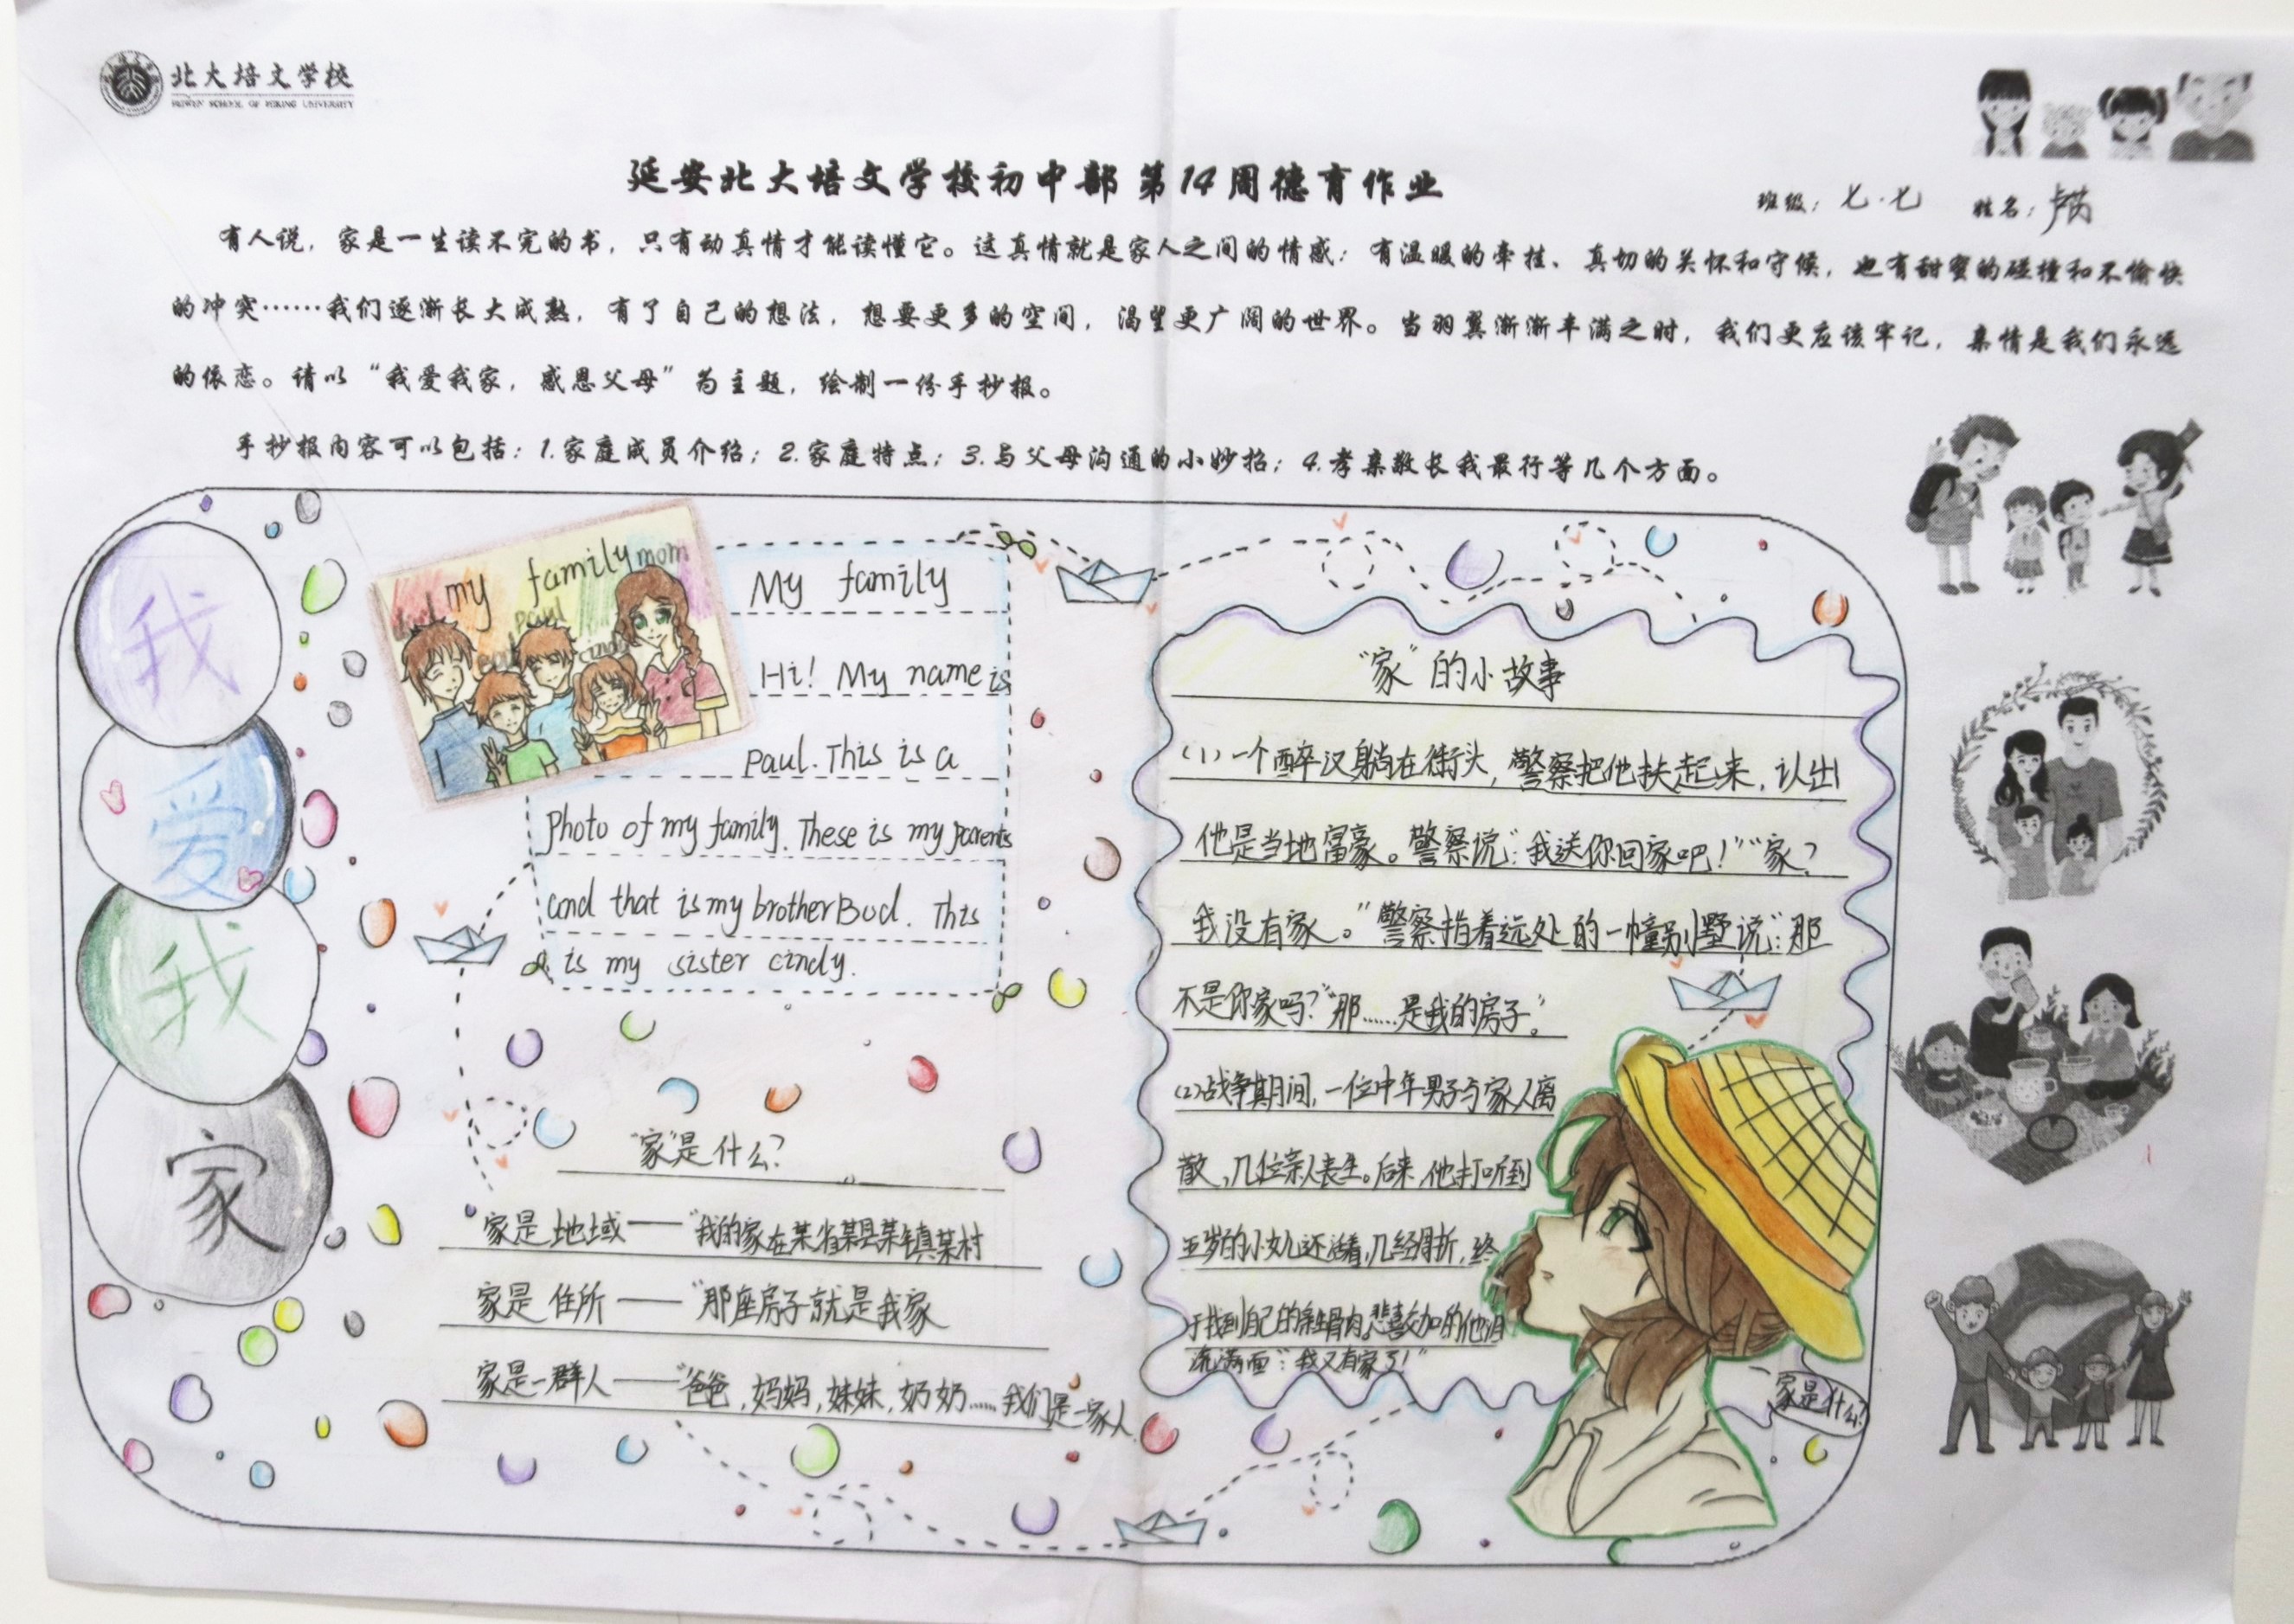 北大培文学校
PEIWEN SCHOOL OF PEKING UNIVERSITY
延安北大培文学校初中部 第14周德育作业
班级：七.七 姓名：卢
有人说，家是一生读不完的书，只有动真情才能读懂它。这真情就是家人之间的情感：有温暖的牵挂、真切的关怀和守候，也有甜蜜的碰撞和不愉快
的冲突……我们逐渐长大成熟，有了自己的想法，想要更多的空间，渴望更广阔的世界。当羽翼渐渐丰满之时，我们更应该牢记，亲情是我们永远
的依恋。请以“我爱我家，感恩父母”为主题，绘制一份手抄报。
手抄报内容可以包括：1.家庭成员介绍；2.家庭特点；3.与父母沟通的小妙招；4.孝亲敬长我最行等几个方面。
我
爱
我
家
my family
mom
paul
cindy
My family
Hi! My name is
paul. This is a
Photo of my family. These is my parents
and that is my brother Bud. This
is my sister cindy.
“家”是什么？
家是 地域——“我的家在某省某县某镇某村
家是 住所——“那座房子就是我家
家是一群人——“爸爸，妈妈，妹妹，奶奶……我们是一家人.
“家”的小故事
（1）一个醉汉躺在街头，警察把他扶起来，认出
他是当地富豪。警察说：“我送你回家吧！”“家？
我没有家。”警察指着远处的一幢别墅说：“那
不是你家吗？”“那……是我的房子。”
（2）战争期间，一位中年男子与家人离
散，几位亲人丧生。后来，他打听到
五岁的小女儿还活着，几经周折，终
于找到自己的亲生骨肉，悲喜交加的他泪
流满面：“我又有家了！”
家是什么？